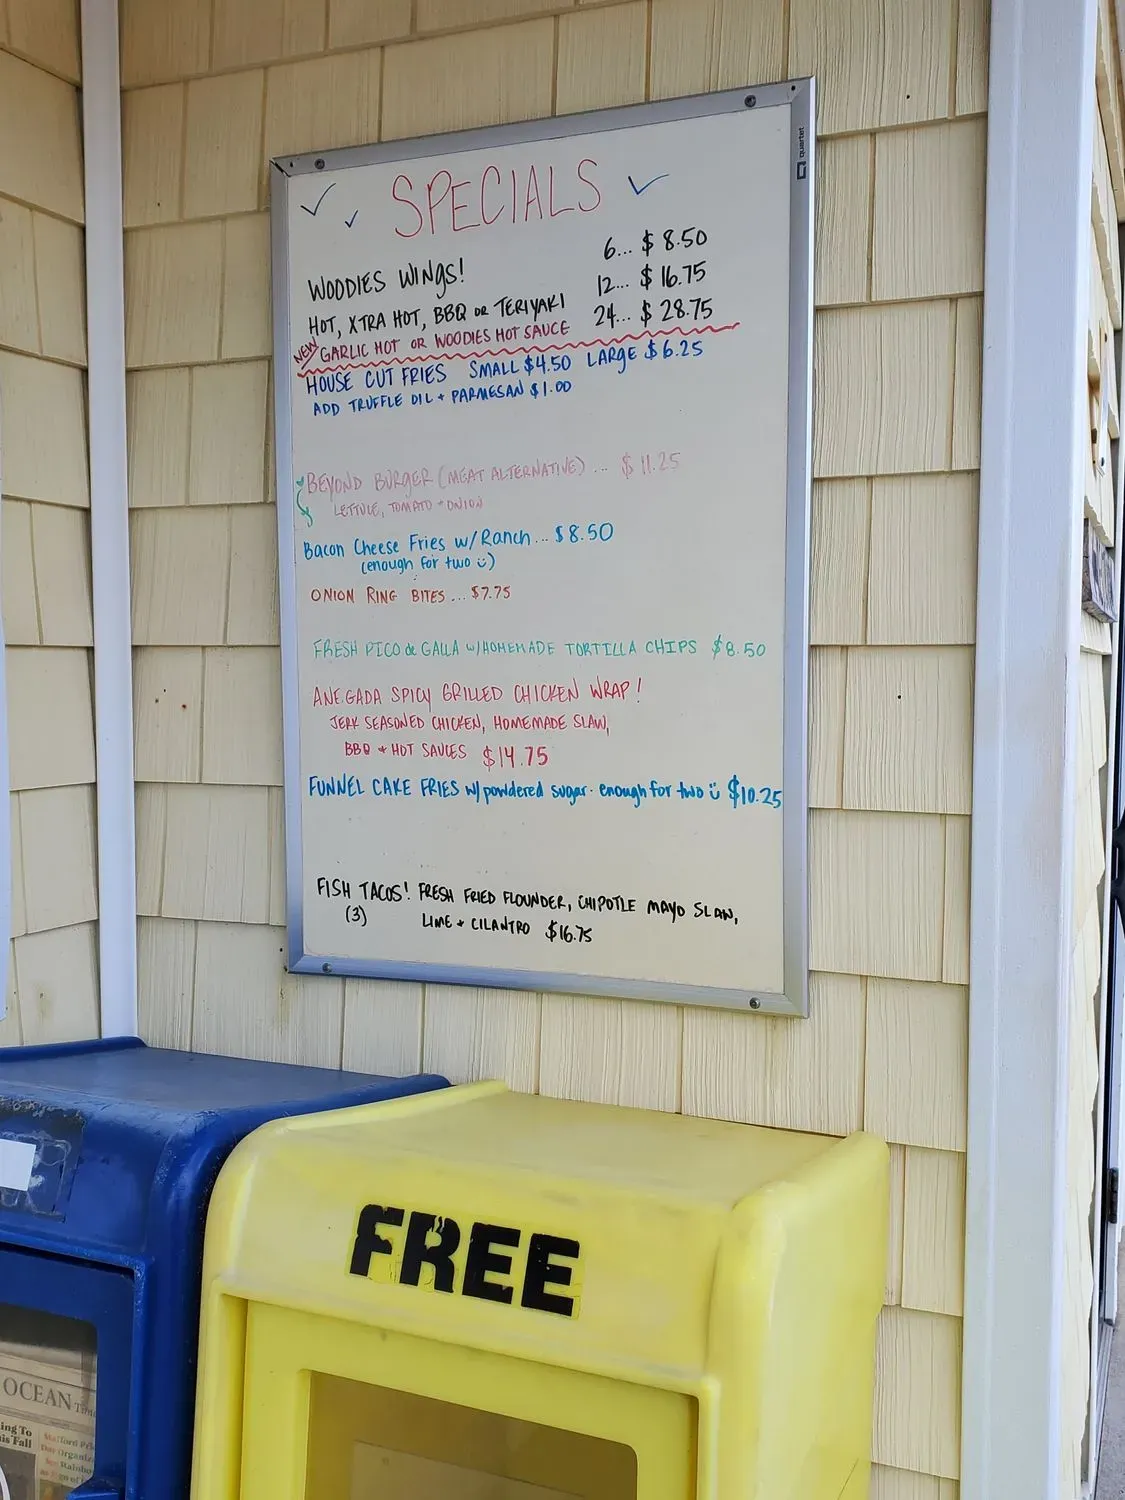 quartet
SPECIALS
WOODIES WINGS!
6... $8.50
HOT, XTRA HOT, BBQ OR TERIYAKI
12... $16.75
NEW GARLIC HOT OR WOODIES HOT SAUCE
24... $28.75
HOUSE CUT FRIES SMALL $4.50 LARGE $6.25
ADD TRUFFLE OIL + PARMESAN $1.00
BEYOND BURGER (MEAT ALTERNATIVE)... $11.25
LETTUCE, TOMATO + ONION
Bacon Cheese Fries w/Ranch... $8.50
(enough for two ü)
ONION RING BITES... $7.75
FRESH PICO de GALLA w/HOMEMADE TORTILLA CHIPS $8.50
ANEGADA SPICY GRILLED CHICKEN WRAP!
JERK SEASONED CHICKEN, HOMEMADE SLAW,
BBQ + HOT SAUCES $14.75
FUNNEL CAKE FRIES w/powdered sugar. enough for two ü $10.25
FISH TACOS! FRESH FRIED FLOUNDER, CHIPOTLE MAYO SLAW,
(3) LIME + CILANTRO $16.75
FREE
OCEAN
ing To
is Fall